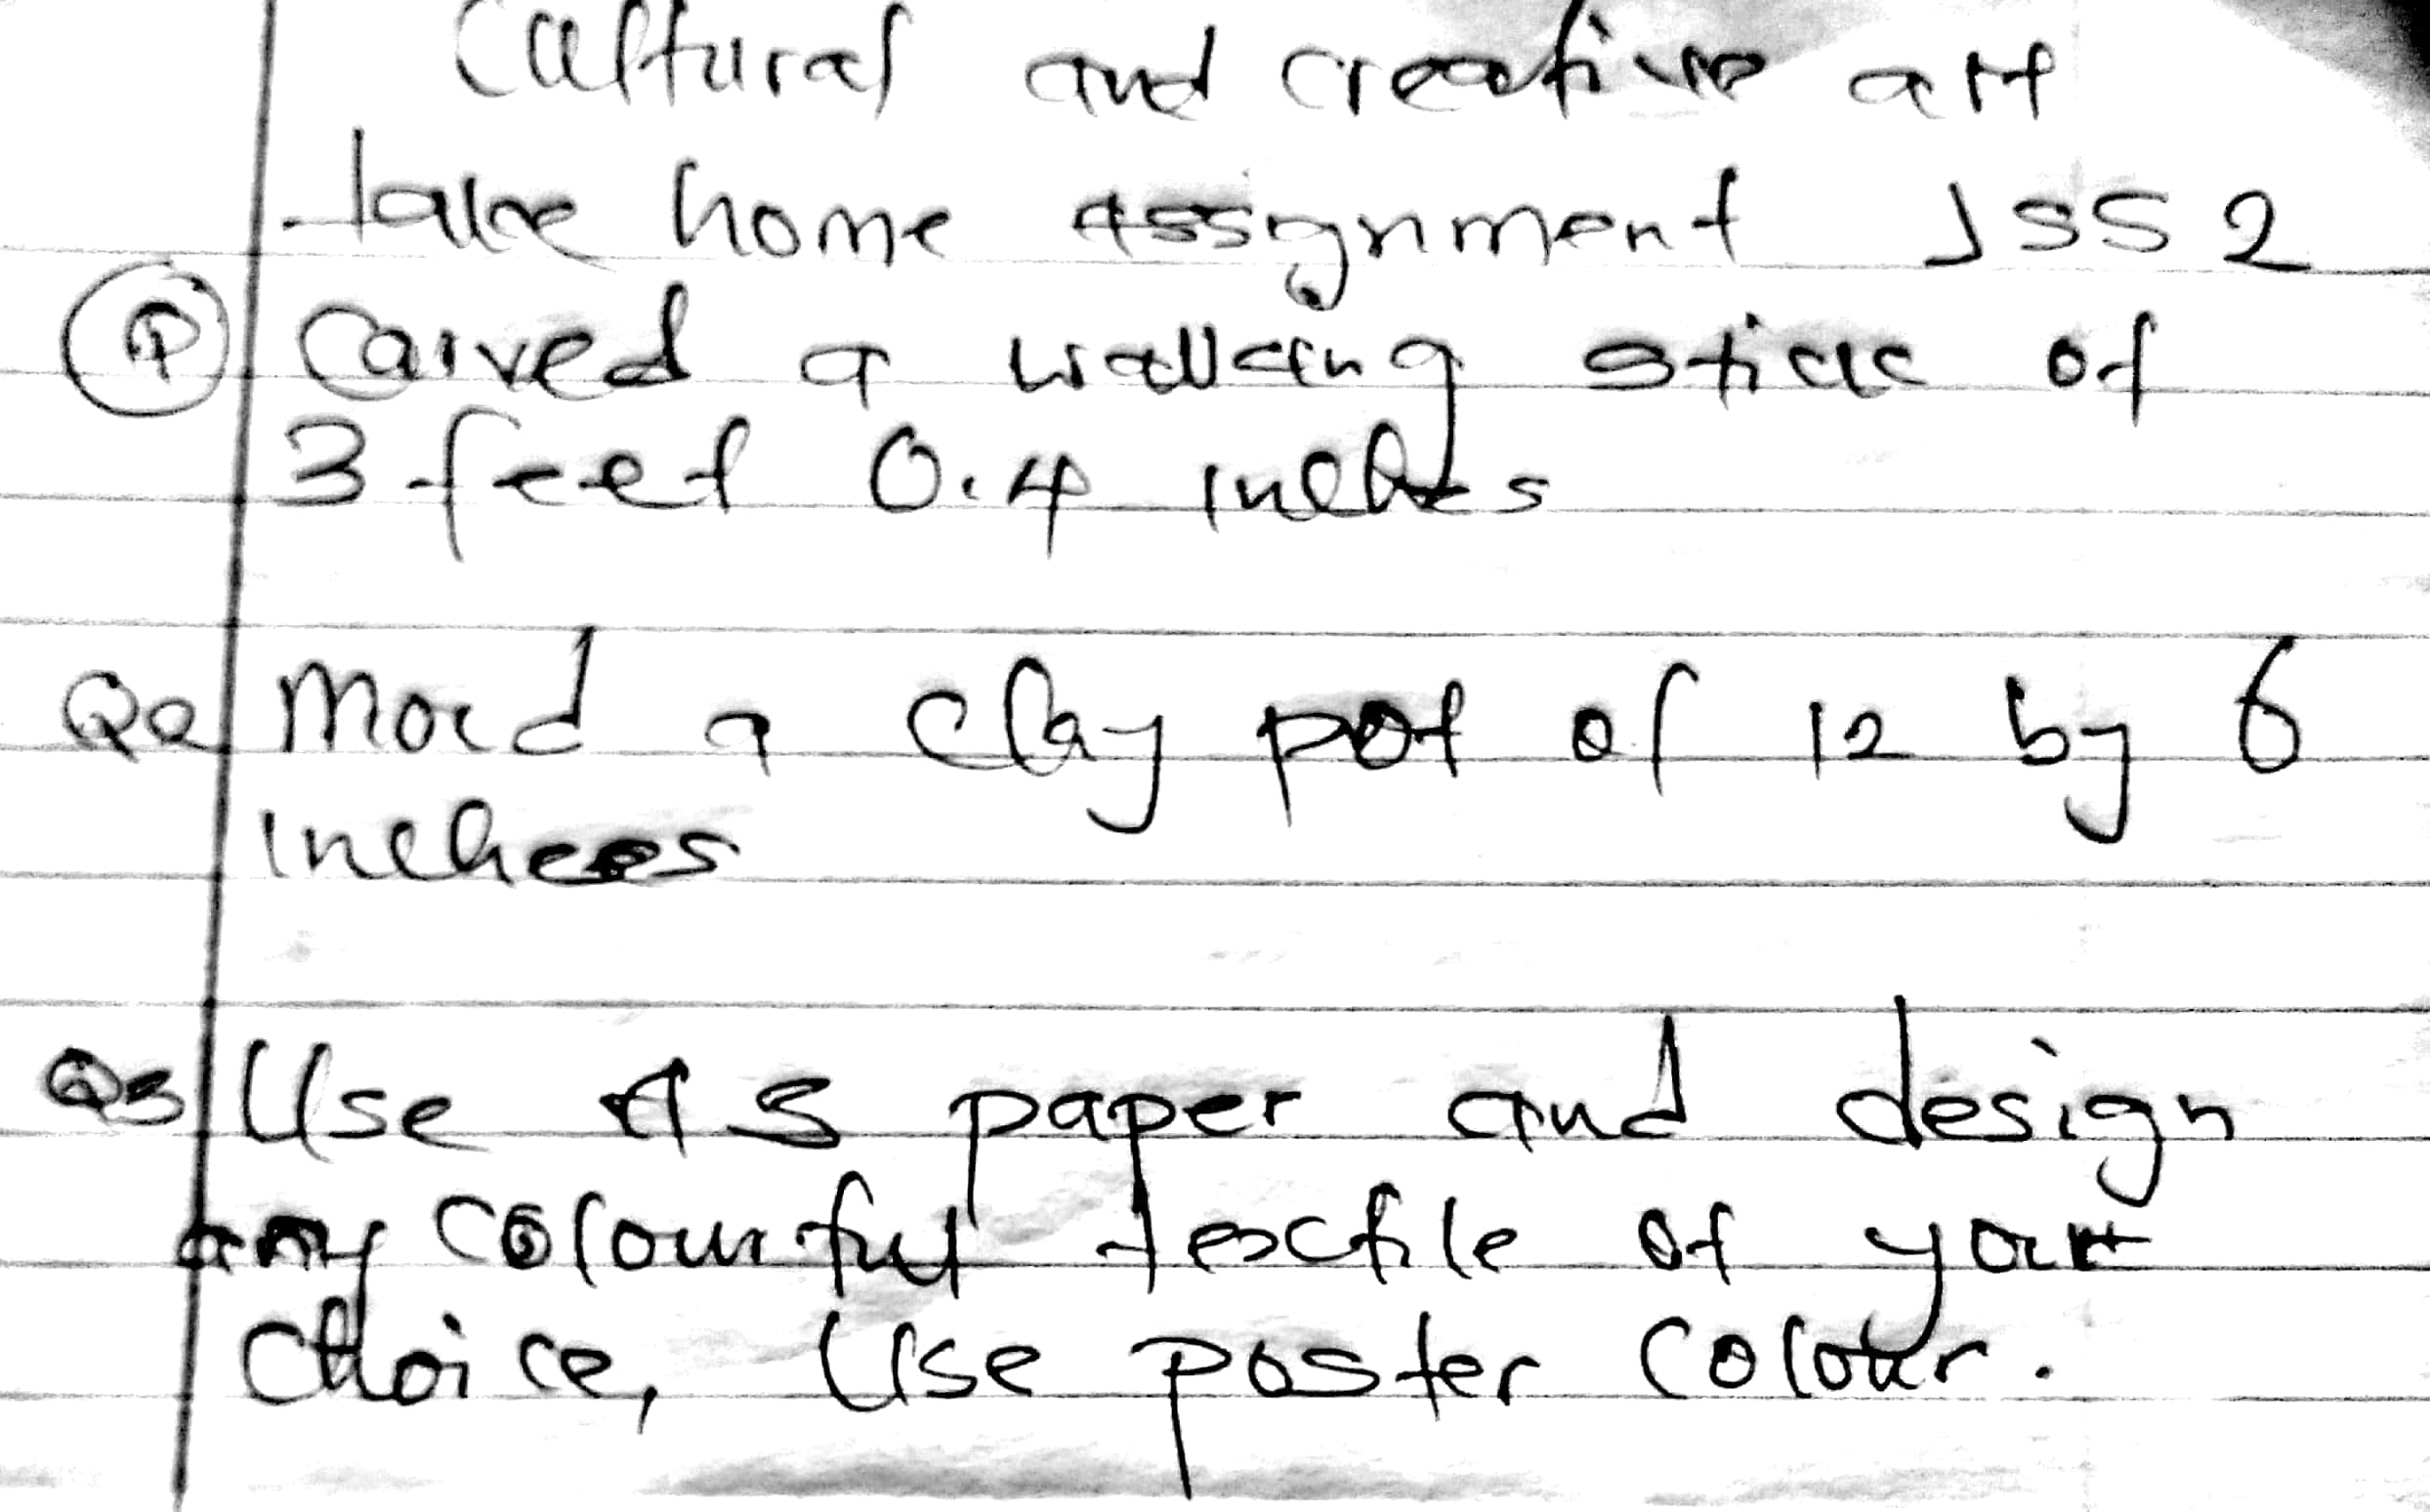 Cultural and creative art
take home assignment JSS 2
Q1 Carved a walking stick of
3 feet 0.4 inches
Q2 Mord a clay pot of 12 by 6
inchees
Q3 Use A3 paper and design
any colourful textile of your
choice, Use poster colour.